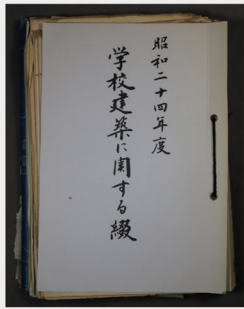 昭和二十四年度
学校建築に関する綴